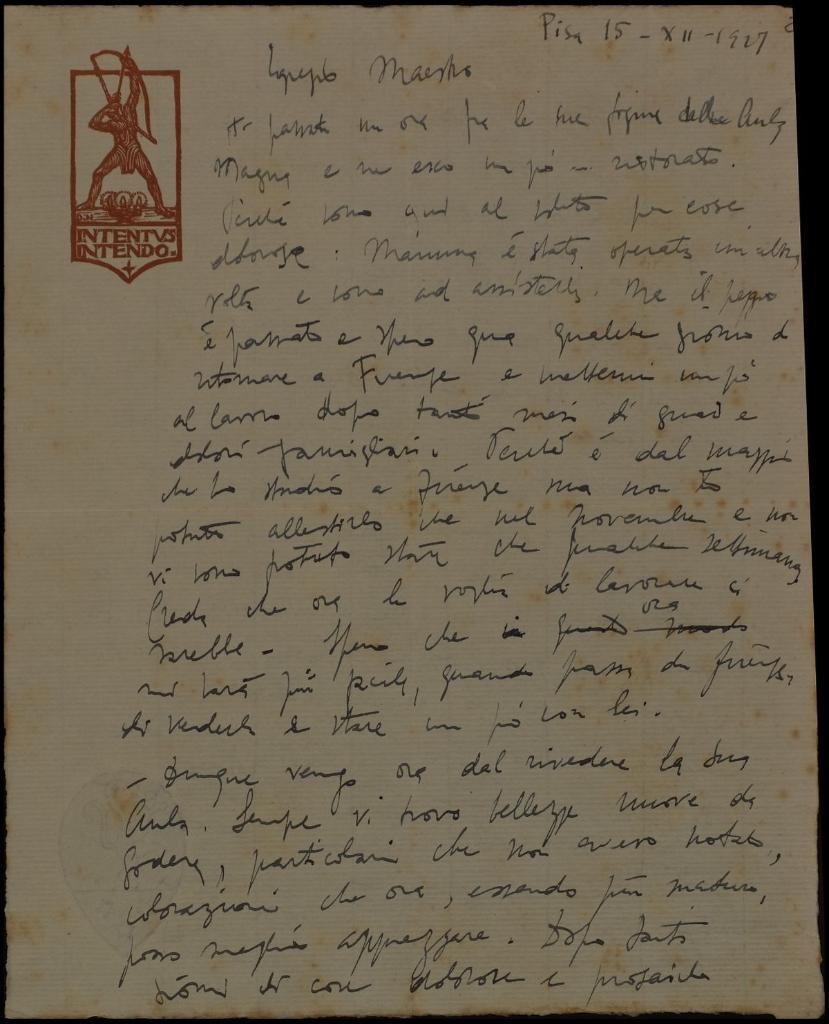 Pisa 15-XII-1927
Egregio Maestro
INTENTVS
INTENDO.
Ho passato un'ora fra le sue figure della Aula
Magna e ne esco un pò ristorato.
Perché sono qui al solito per cose
dolorose: Mamma é stata operata un'altra
volta e sono ad assisterla. Ma il peggio
é passato e spero fra qualche giorno di
ritornare a Firenze e mettermi un pò
al lavoro dopo tanti mesi di guai e
dolori famigliari. Perché é dal maggio
che ho studio a Firenze ma non ho
potuto allestirlo che nel novembre e non
vi sono potuto stare che qualche settimana,
Creda che ora la voglia di lavorare ci
sarebbe - Spero che ora
mi sarà più facile, quando passa da Firenze,
di vederla e stare un pò con lei.
- Dunque vengo ora dal rivedere la sua
Aula. Sempre vi trovo bellezze nuove da
godere, particolari che non avevo notato,
colorazioni che ora, essendo più maturo,
posso meglio apprezzare. Dopo tanti
giorni di cose dolorose e prosaiche